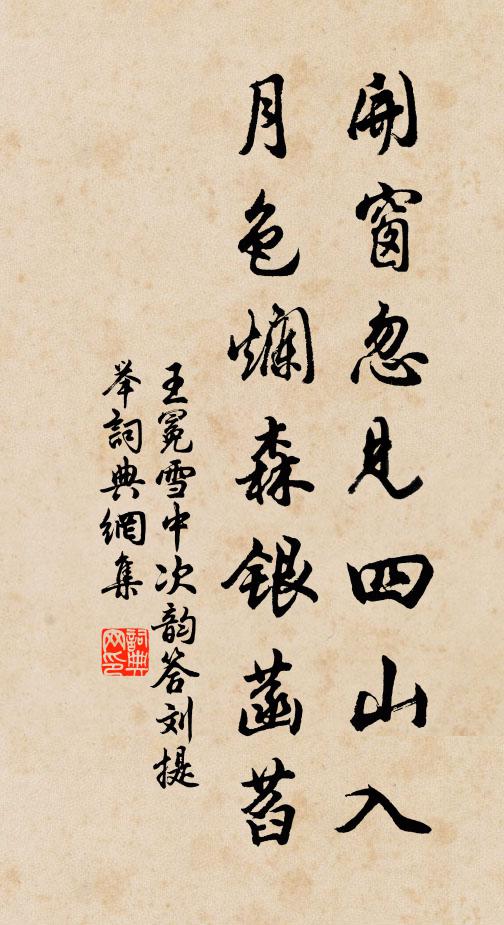 開窗忽見四山入
月色爛森銀菡萏
王冕雪中次韵答刘提
举詞典網集
詞典
网印